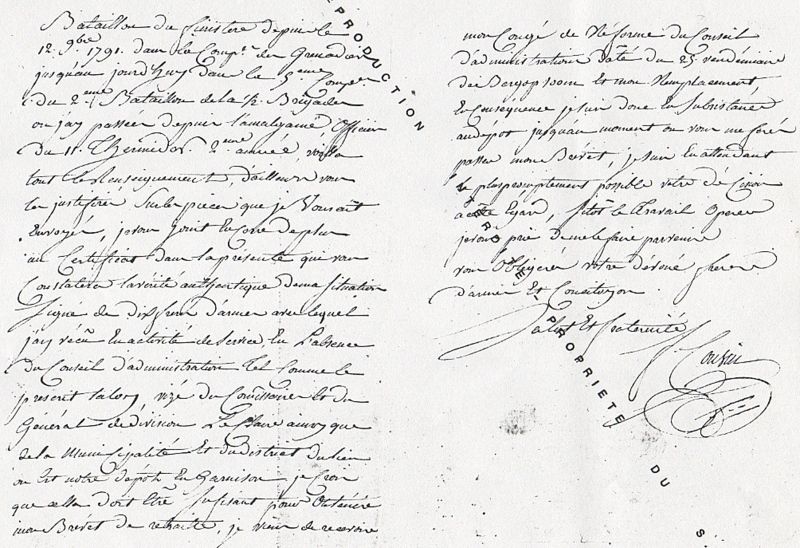 Bataillon du finistere depuis le
12. 9bre 1791. dans la Compie. des Grenadiers
jusqu'au jourd'huy dans la 5eme Compie
du 2eme Bataillon de la Brigade
ou jay passer depuis lamalgame Officier
du 11. Thermidor 2eme année voilla
tout le Renseignement, dailleurs vous
le justifiré sur les pieces que je Vous ait
Envoyer, je vous joint Encore de plus
un Certificat dans la présente qui vous
Constatera laverité authentique de ma Situation
signé de dix freres d'armes avec lequel
j'ay vécu En activité de Service, En L'absence
du Conseil d'administration Tel comme le
prescrit la loy, visé du Commissaire Et du
Général de division Le Clave ainsy que
de la Municipalité Et du district du lieu
ou Est notre depôt En Garnison je Crois
que cella doit Etre sufisant pour Obtenire
mon Brévet de retraite, je viens de recevoire
mon Congé de Réforme du Conseil
d'administration daté du 25 vendémiaire
de Bergopsoom et mon Remplacement,
En Conséquence je suis donc En Subsistance
audépot jusquau moment ou vous me ferés
passer mon Brévet, je suis En attendant
le plus promptement possible votre décision
a cette Egard, Sitôt le Travail Operer
je vous prie de me le faire parvenire
vous Obligerér votre dévoué frere
d'armes Et Concitoyen.
Salut Et fraternité
Cousin
REPRODUCTION
PROPRIETE DU S.